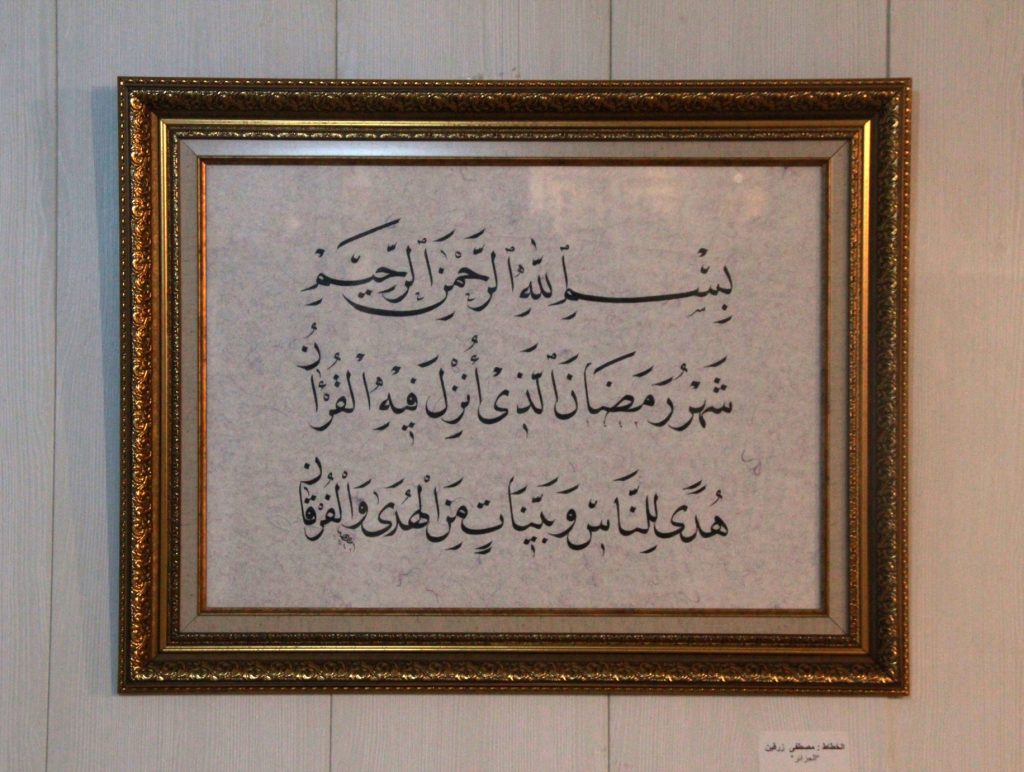 بِسْمِ ٱللَّهِ ٱلرَّحْمَٰنِ ٱلرَّحِيمِ
شَهْرُ رَمَضَانَ ٱلَّذِى أُنْزِلَ فِيهِ الْقُرْءَانُ
هُدًى لِلنَّاسِ وَبَيِّنَاتٍ مِنَ الْهُدَىٰ وَالْفُرْقَانِ
الخطاط : مصطفى زرقين
"الجزائر"